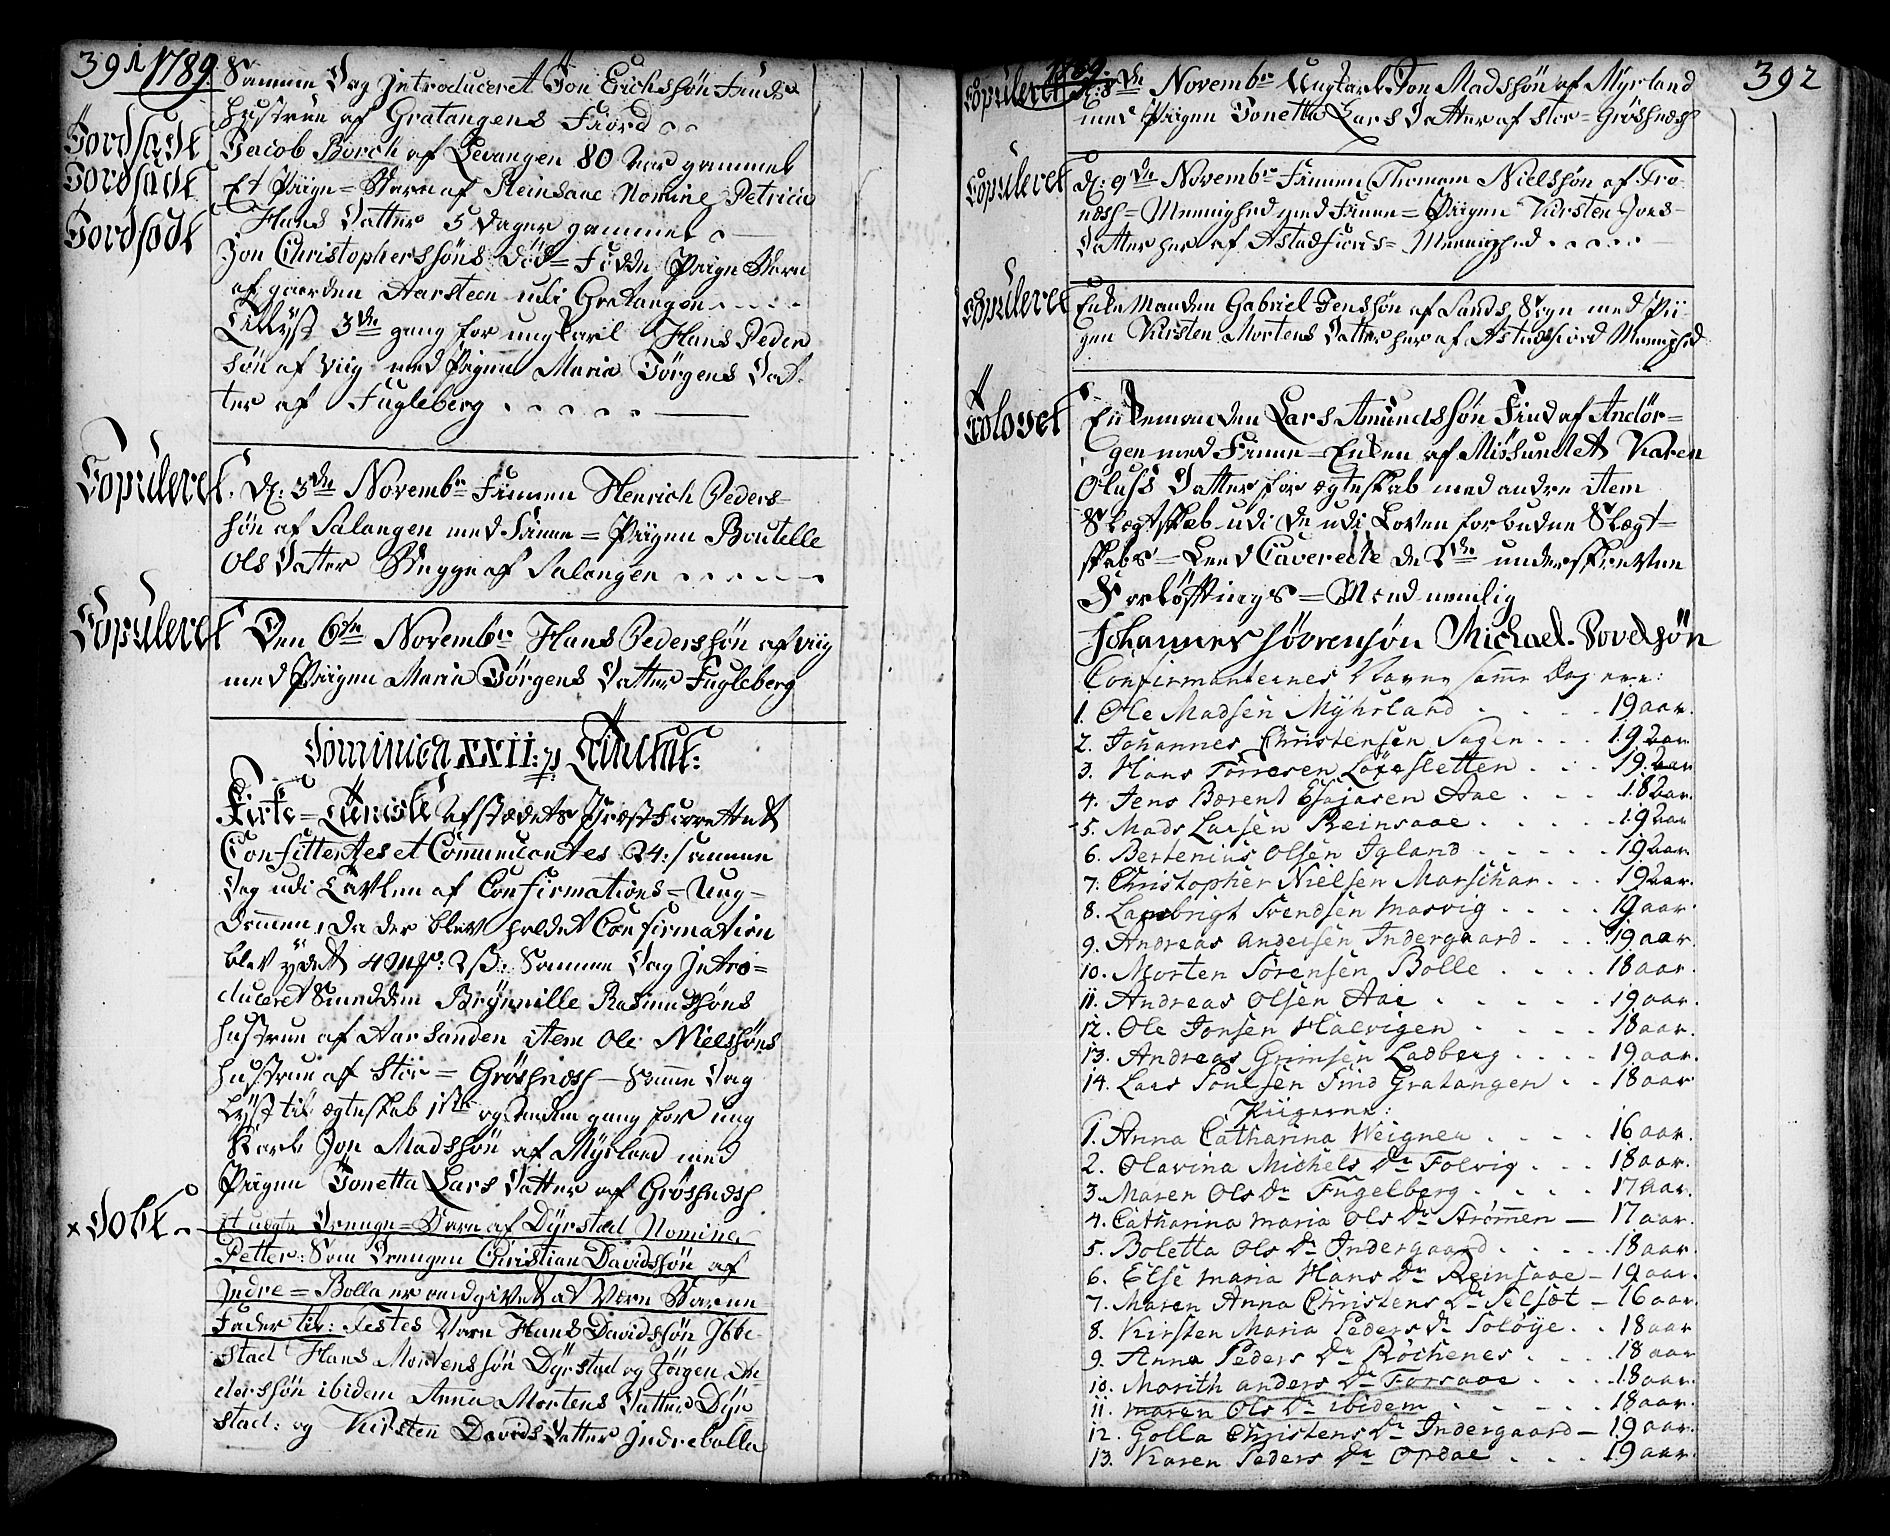 391 1789.
Samme Dag Introduceret Jon Erichssøn Finds
Hustrue af Gratangens Fiord
Jordfæstet
Jacob Borch af Levangen 80 Aar gammel
Jordfæstet
Et Piige=Barn af Reinsaae Nomine Petricia
Hans Datter 5 Dager gammel
Jordfæstet
Jon Christopherssøns Död=Födde Piige Barn
af gaarden Aarsteen udi Gratangen
Tillyst 3de gang for ungkarl Hans Peder
søn af Viig med Piigen Maria Jörgens Dat-
ter af Fugleberg
Copuleret
D: 3de Novembr Finnen Henrich Peders-
søn af Salangen med Finne=Piigen Boutelle
Ols Datter Skugge af Salangen
Copuleret
Den 6te Novembr Hans Pederssøn af Viig
med Piigen Maria Jörgens Datter Fugleberg
Dominica XXII: p Trinitat:
Kirke=Tieniste af Stædets Præst forrettet
Confitentes et Communicantes 24: samme
Dag udi Tavlen af Confirmations=Ung-
dommen, da der blev holdet Confirmation
blev ydet 4 2 ß: Samme Dag Intro=
duceret Smeddem Brynnille Rasmussøns
Hustrue af Aarsanden item Ole Nielssøns
Hustrue af Stor=Grösnæss – Samme Dag
Lyst til ægteskab 1ste og anden gang for ung
Karl Jon Madssøn af Myrland med
Piigen Tonetta Lars Datter af Grösnæss
x Döbt
Et uægte Drenge=Barn af Dyrstad Nomine
Petter: Som Drengen Christian Davidssøn af
Indre=Bolla er angivet at være Barne
Fader til: Testes Vare Hans Davidssøn Ibbe-
stad Hans Mortenssøn Dyrstad og Jörgen Pe-
derssøn ibidem Anna Mortens Datter Dyr
stad: og Kirsten Davids Datter Indrebolla
1789. 392
Copuleret
D: 8de Novembr Ungkarl Jon Madssøn af Myrland
med Piigen Tonetta Lars Datter af Stor=Grösnæss
Copuleret
D: 9de Novembr Finnen Thomam Nielssøn af Tro-
næss=Meenighed med Finne=Piigen Kirsten Jons-
Datter her af Astadfiords=Meenighed
Copuleret
Enke Manden Gabriel Jenssøn af Sands Sogn med Pii-
gen Kirsten Mortens Datter her af Astadfiord Meenighed
Trolovet
Enkemanden Lars Amundssøn Find af Andör=
gen med Finne=Enken af Mösundet Karen
Olufs Datter for ægteskab med andre item
Slægtskab udi de udi Loven forbudne Slægt=
skabs=Leed Caverede de 2de underskrevne
Forlöftnings=Mænd nemlig
Johannes Sörensön Michael Povelsøn
Confirmanternes Navne samme Dag ere:
1. Ole Madsen Myhrland . . . . 19 aar.
2. Johannes Christensen Sagen . . . 19 aar
3. Hans Torresen Laxesletten . . . 19. aar
4. Jens Bærent Esajasen Aae . . . 18 aar.
5. Mads Larsen Reinsaae . . . . . 19 aar
6. Bertenius Olsen Igland . . . . . 19 aar.
7: Christopher Nielsen Marschar . . . 19 aar.
8. Lambrigt Svendsen Masvig . . . . 19 aar.
9. Andreas Andersen Indergaard . . . 19 aar.
10. Morten Sörensen Bolle . . . . 18 aar.
11. Andreas Olsen Aae . . . . . 19 aar.
12. Ole Jonsen Halvigen . . . . 18 aar.
13. Andreas Grimsen Ladberg . . . . 19 aar.
14. Lars Poulsen Find Gratangen . . 18 aar
Piigerne:
1. Anna Catharina Weigner . . . . 16 aar.
2. Olavina Michels Dr Folvig . . . 18 aar.
3. Maren Ols Dr Fugelberg . . . . . 17 aar.
4. Catharina Maria Ols Dr Strømmen — 17 aar.
5. Boletta Ols Dr Indergaard . . . . . 18 aar.
6. Else Maria Hans Dr Reinsaae – 19 aar.
7. Maren Anna Christens Dr Selsæt – 16 aar.
8. Kirsten Maria Peders Dr Soløye . . 18 aar
9. Anna Peders Dr Röchenes . . . . 18 aar
10. Marith Anders Dr Forsaae . . . 18 aar.
11. Maren Ols Dr ibidem . . . . . . 18 aar.
12. Golla Christens Dr Indergaard – 19 aar.
13. Karen Peders Dr Opdae . . . . 19 aar.